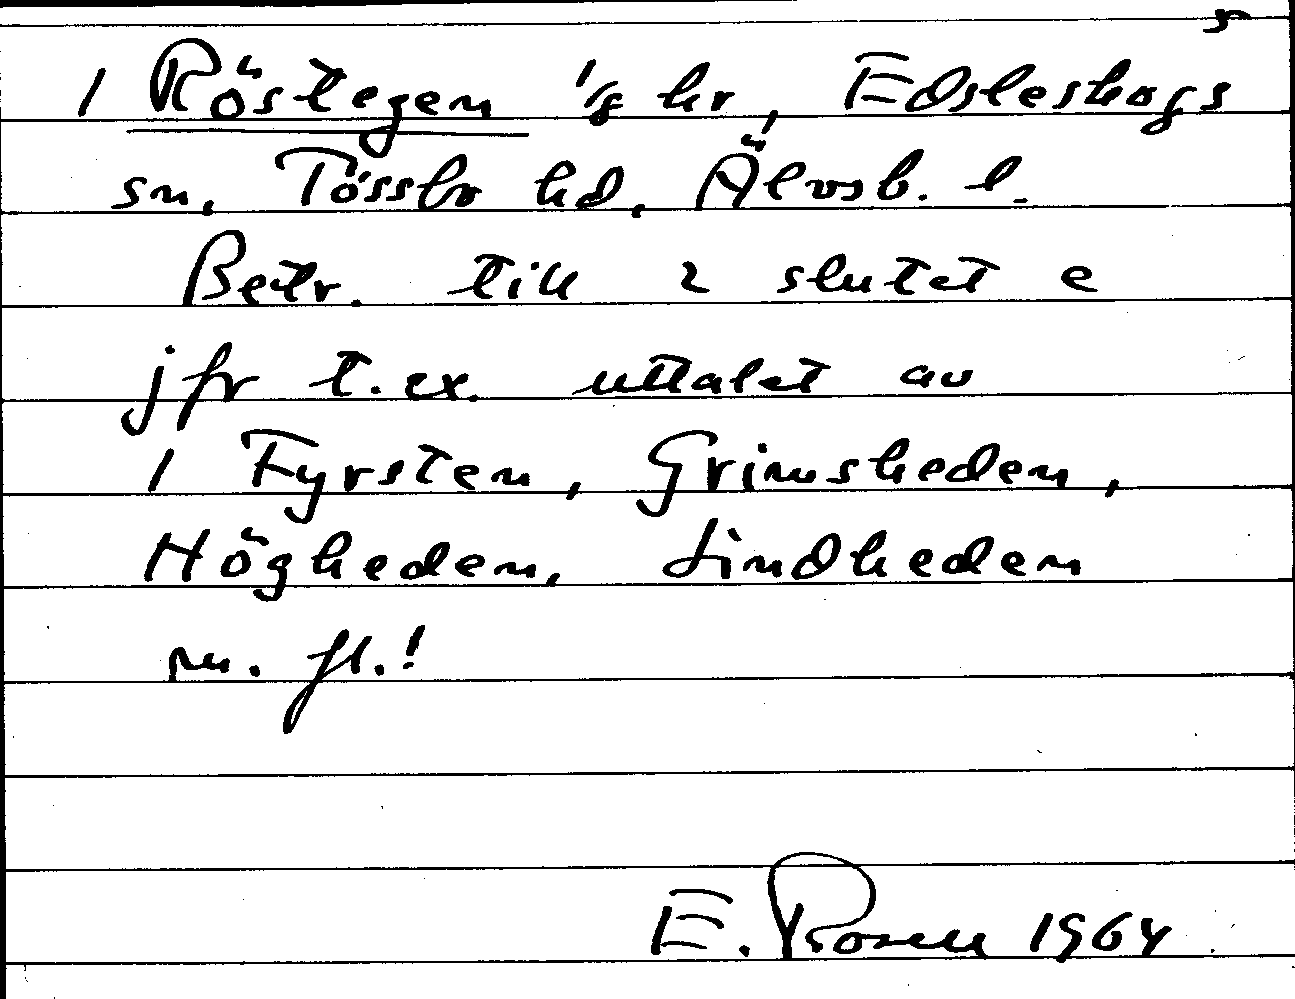 5
1 Röstegen 1/8 hr, Edsleskogs
sn, Tössbo hd, Älvsb. l.
Betr. till 2 slutet e
jfr t.ex. uttalet av
1 Fyrsten, Grimsheden,
Högheden, Lindheden
m. fl.!
E. Rosell 1964